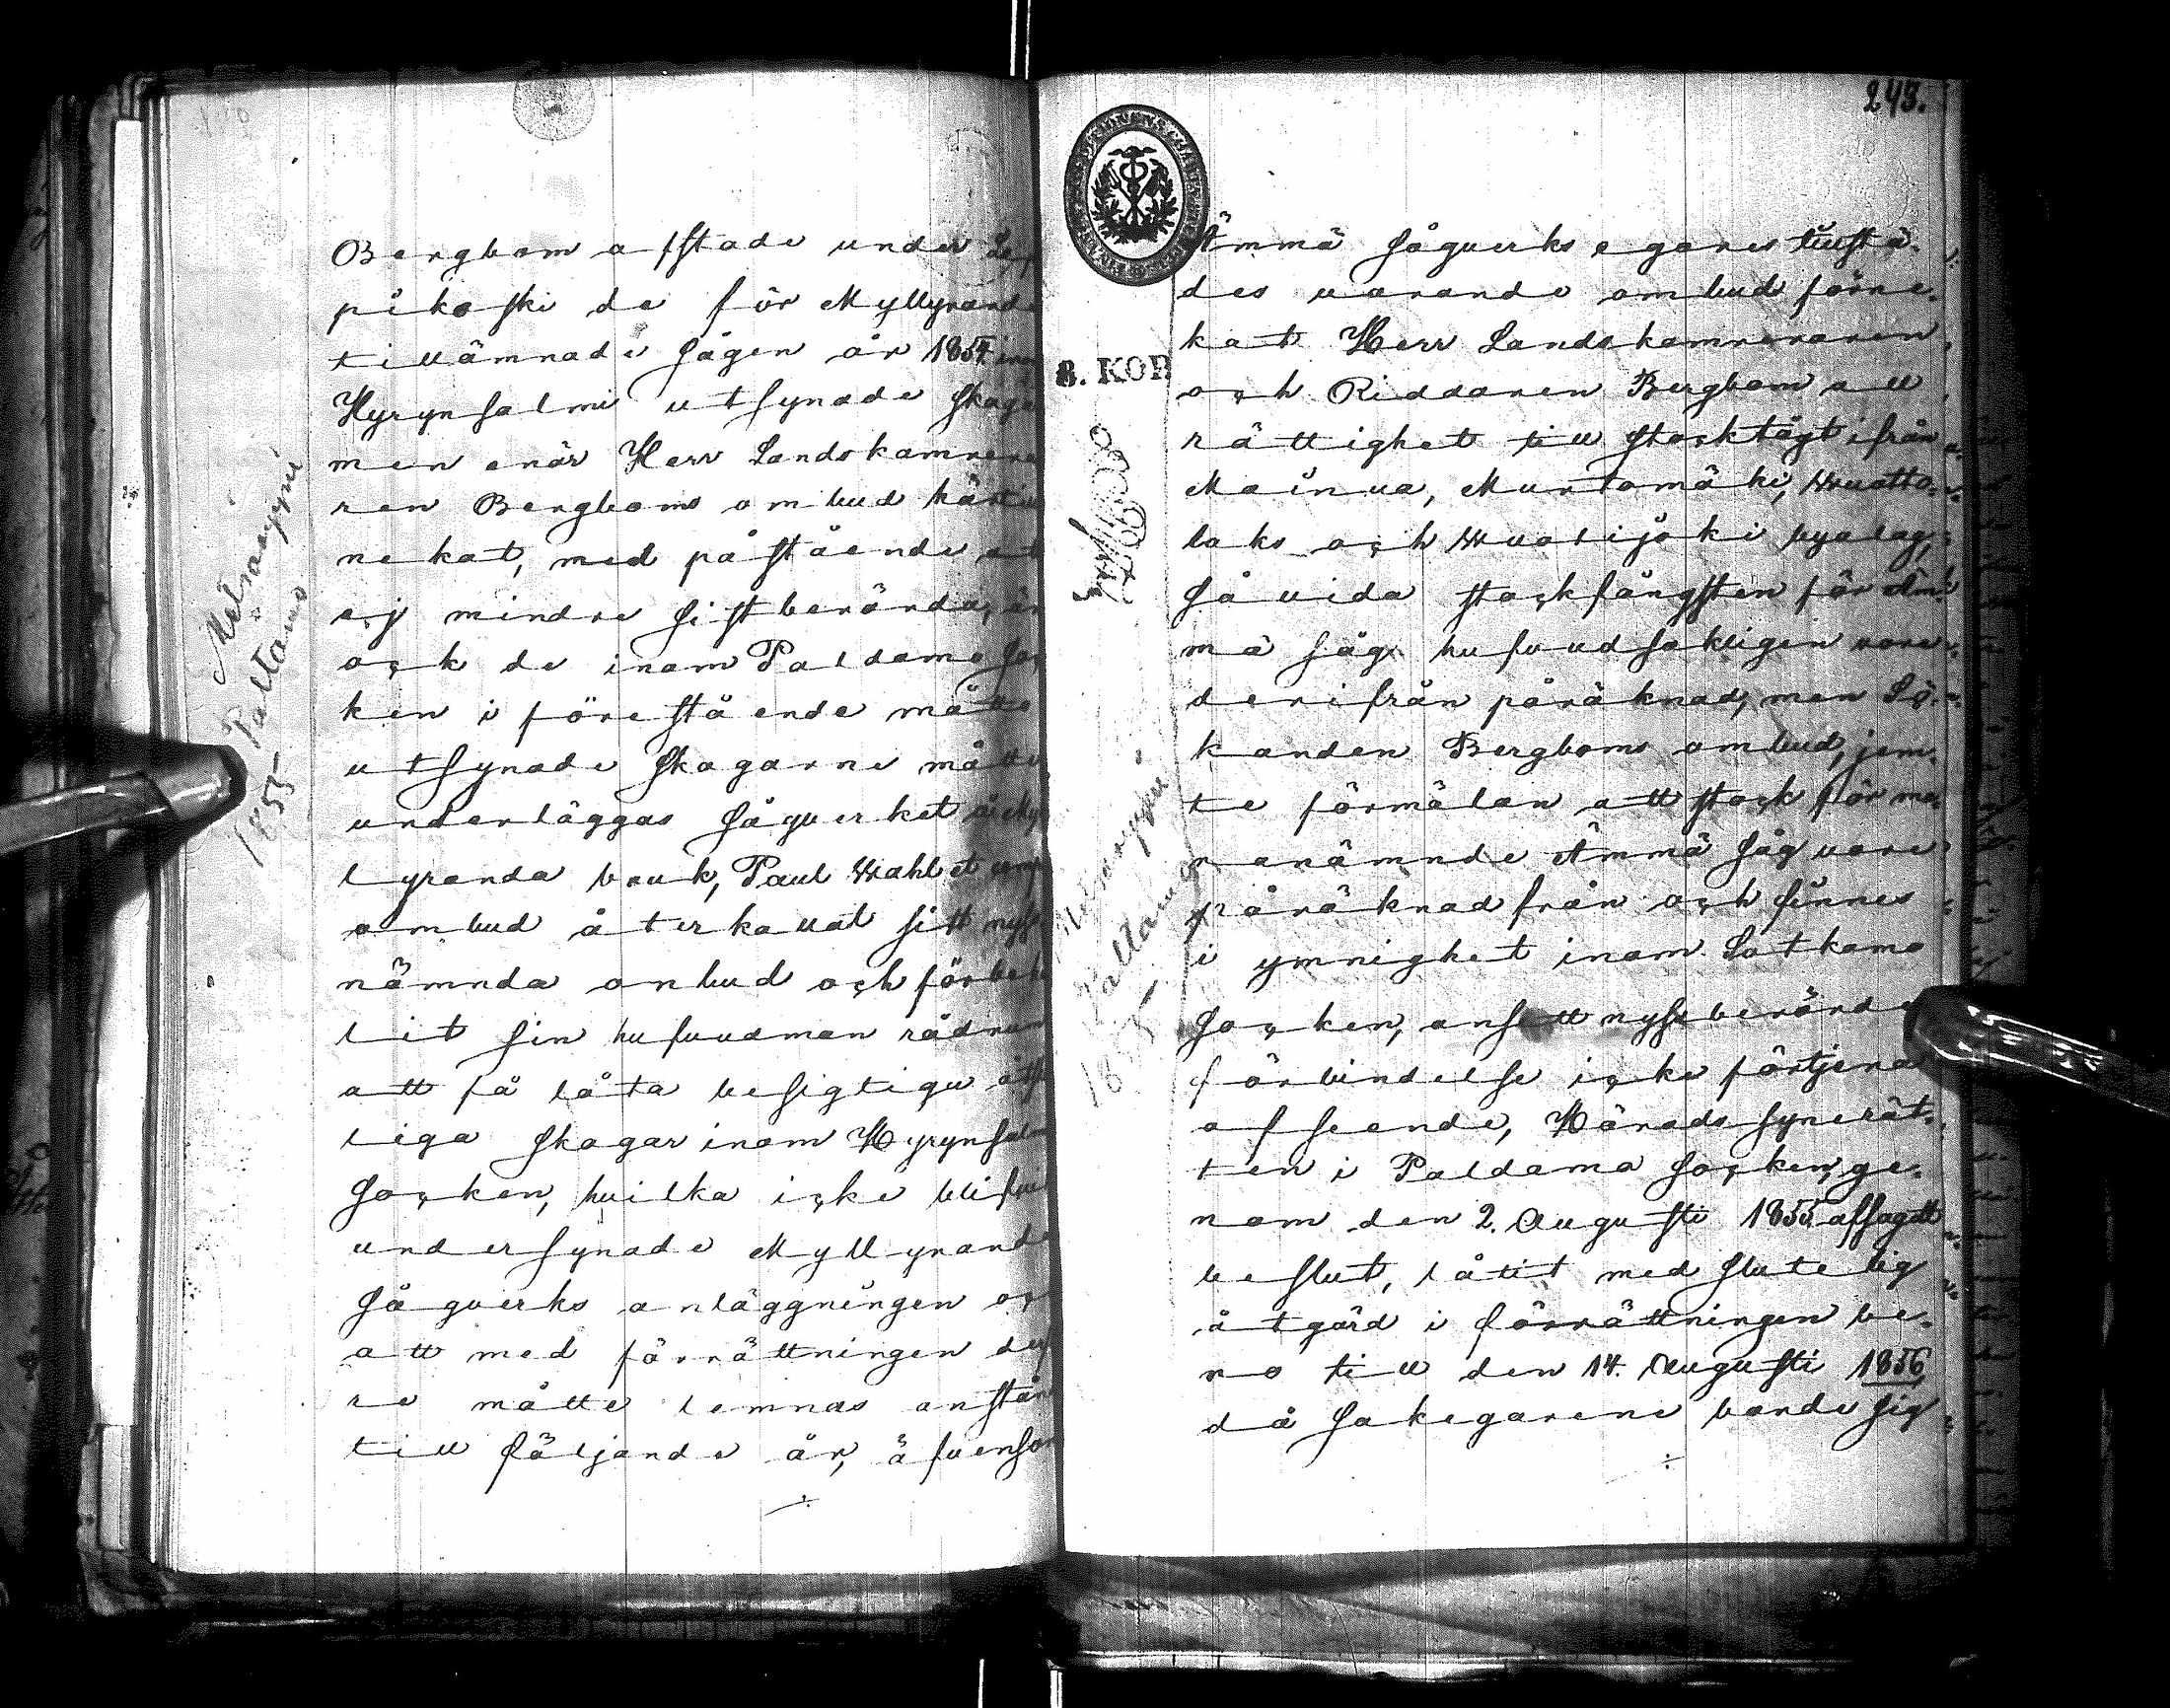 Bergbom afstode under Lep
pikoski de för Myllyranda
tillämnade sågen år 1854 inom
Hyrynsalmi utsynade skoga
men enär Herr Landskamrera
ren Bergboms ombud härtill
nekat, med påstående att
ej mindre sistberörda, än
ock de inom Paldamo Soc
ken i förestående måtto
utsynade skogarne måtte
underläggas sågverket å My
lyranda bruk, Paul Wahl et
ombud återkallat sitt nyss
nämnda anbud och förbehå
lit sin hufvudman rådrum
att få låta besigtiga
liga skogar inom Hyrynsalmi
Socken, hvilka icke blifvit
undersynade Myllyranda
sågverks anläggningen och
att med förrättningen der
re måtte lemnas anstånd
till följande år, äfvensom
Melaseppni
Paltamo
1855
243.
8. KOP.
Ämmä sågverks egares tillstä-
des varande ombud förne-
kat Herr Landskamreraren
och Riddaren Bergbom all
rättighet till stocktägt ifrån
Mainua, Murtomäki, Wuotto-
laks och Wuolijoki byalag,
så vida stockfångsten för Äm-
mä såg hufvudsakligen vore
derifrån påräknad, men Sö-
kanden Bergboms ombud, jem-
te förmälan att stock för me-
ranämnde Ämmä såg vore
påräknad från och finnes
i ymnighet inom Sotkamo
Socken, ansett nyssberörde
förbindelse icke förtjena
afseende, Härads synerät-
ten i Paldamo Socken, ge-
nom den 2. Augusti 1855 afsagdt
beslut, låtit med slutelig
åtgärd i förrättningen be-
ro till den 14. Augusti 1856,
då sakegarene borde sig
Paltamo